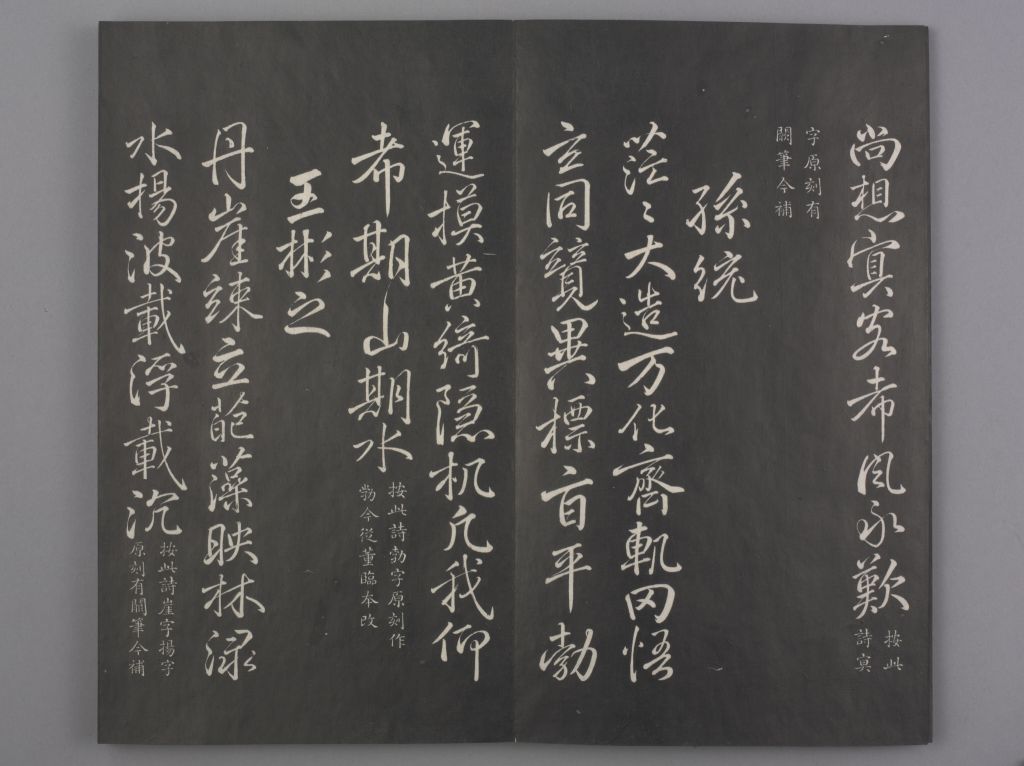 尚想冥客希風永歎按此詩冥
字原刻有闕筆今補
孫統
茫〻大造万化齊軌罔悟
玄同競異標旨平勃
運摸黃綺隱机凡我仰
希期山期水按此詩勃字原刻作勃今從董臨本改
王彬之
丹崖竦立葩藻映林淥
水揚波載浮載沉按此詩崖字揚字原刻有闕筆今補